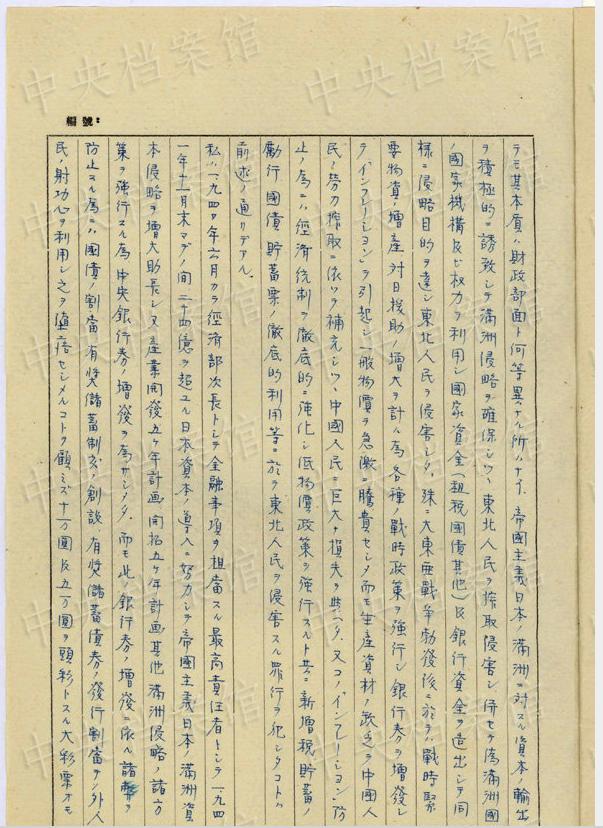 中央档案馆
編號:
ラモ其本質ハ財政部面ト何等異ナル所ハナイ。帝國主義日本ノ滿洲ニ対スル資本ノ輸出
ヲ積極的ニ誘致シテ滿洲侵略ヲ確保シツヽ東北人民ヲ搾取侵害シ併セテ偽滿洲國
ノ國家機構及ビ权力ヲ利用シ國家資金(租税國債其他)及銀行資金ヲ造出シテ同
様ニ侵略目的ヲ達シ東北人民ヲ侵害シタ。殊ニ大東亜戦争勃發後ニ於テハ戦時緊
要物資ノ増産対日援助ノ増大ヲ計ル為各種ノ戦時政策ヲ強行シ銀行券ヲ増發シ
テ「インフレーション」ヲ引起シ一般物價ヲ急激ニ騰貴セシメ而モ生産資材ノ欠乏ヲ中國人
民ノ勞力搾取ニ依ツテ補充シツヽ中國人民ニ巨大ナ損失ヲ與ヘタ。又コノ「インフレーション」防
止ノ為ニハ經済統制ヲ徹底的ニ強化シ低物價政策ヲ強行スルト共ニ新増税貯蓄ノ
勵行國債貯蓄票ノ徹底的利用等ニ於テ東北人民ヲ侵害スル罪行ヲ犯シタコトハ
前述ノ通リデアル。
私ハ一九四〇年六月カラ經済部次長トシテ金融事項ヲ担當スル最高責任者トシテ一九四
一年十一月末マデノ間二十四億ヲ超ユル日本資本ノ導入ニ努力シテ帝國主義日本ノ滿洲資
本侵略ヲ増大助長シ又産業開發五ヶ年計画開拓五ヶ年計画其他滿洲侵略ノ諸方
策ヲ強行スル為中央銀行券ノ増發ヲ為サシメタ。而モ此ノ銀行券ノ増發ニ依ル諸弊ヲ
防止スル為ニハ國債ノ割當有奬儲蓄制度ノ創設有奬儲蓄債券ノ發行割當ヲシ外人
民ノ射功心ヲ利用シ之ヲ堕落セシメルコトヲ顧ミズ十万圓及五万圓ヲ頭彩トスル大彩票オモ